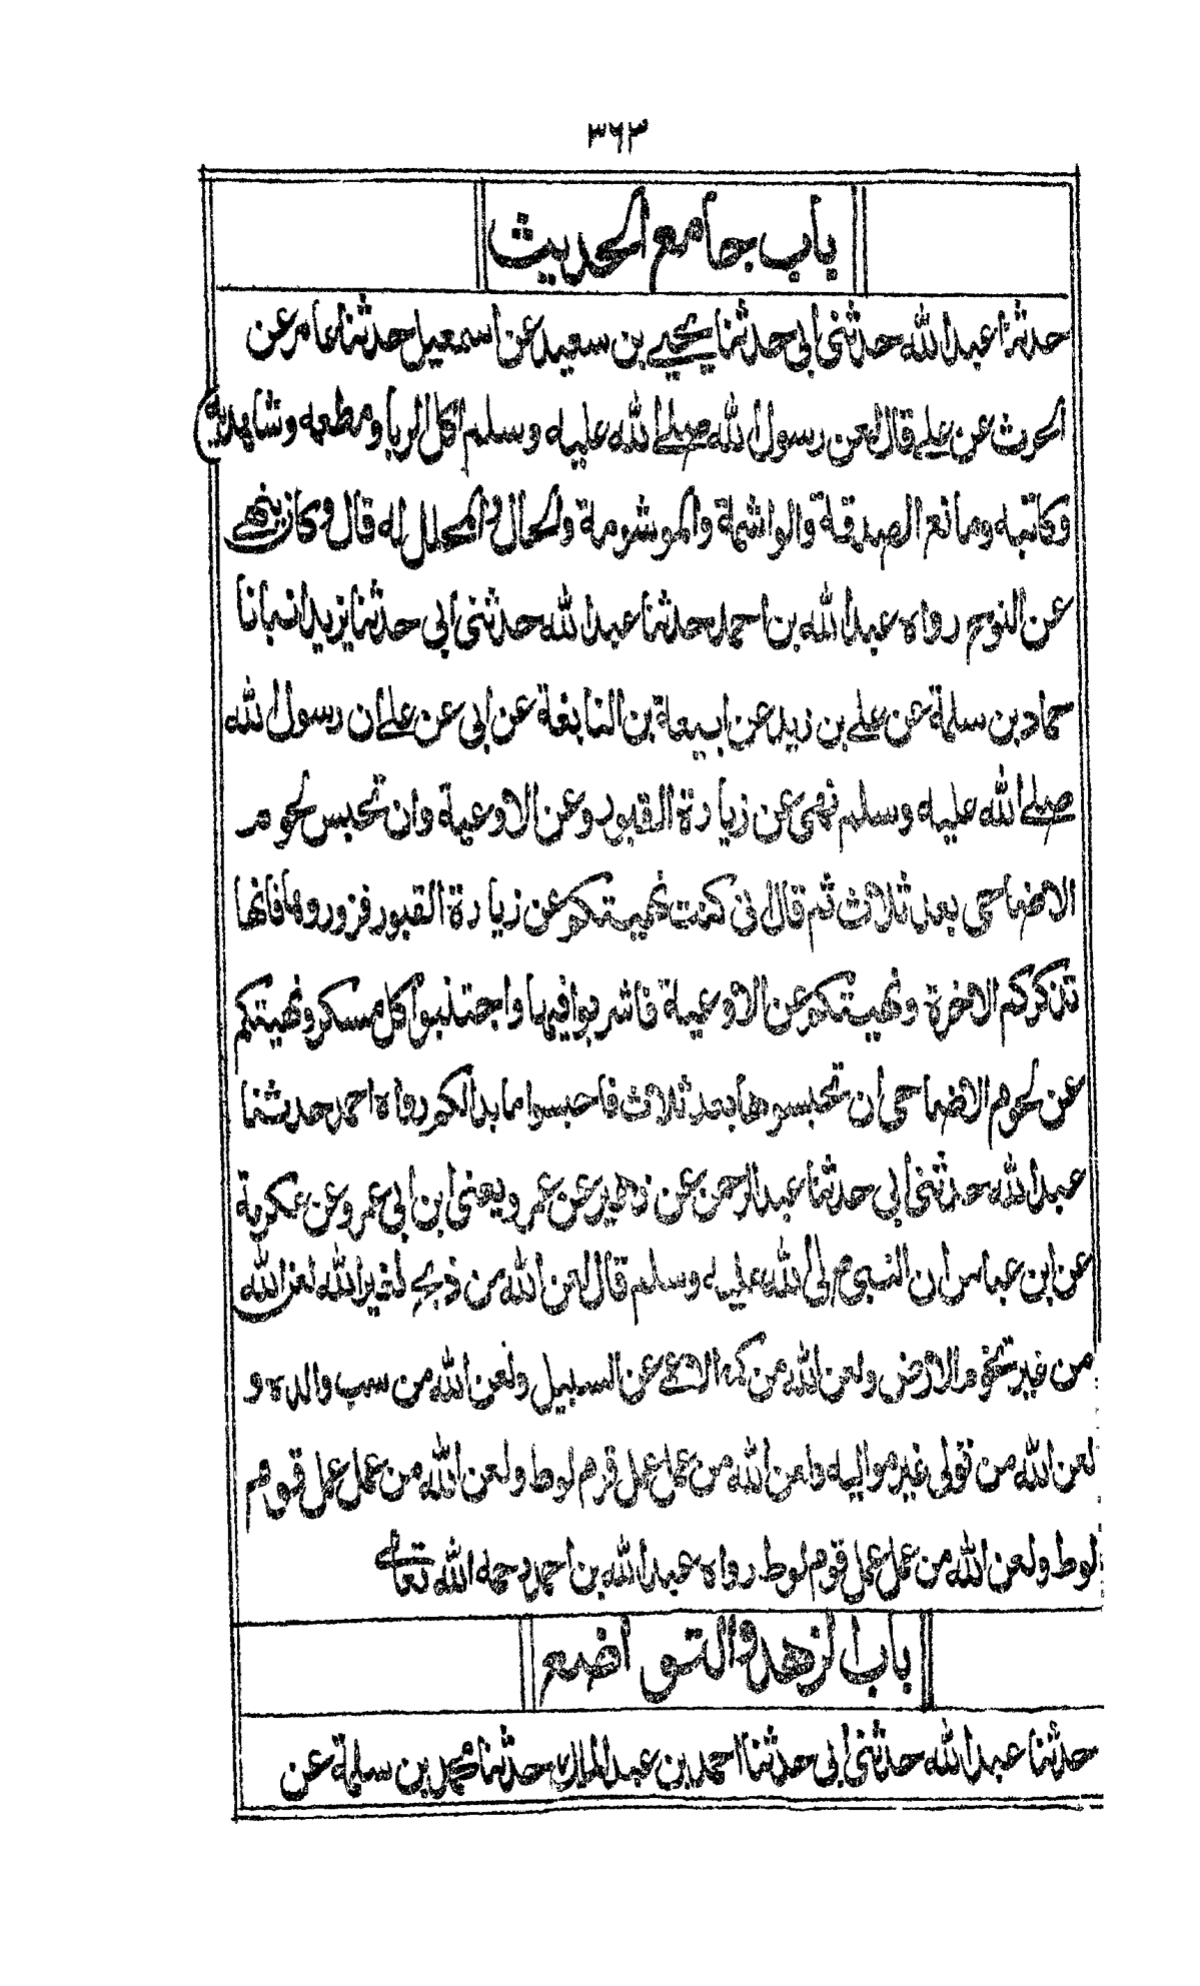 ٣٦٣
باب جامع الحديث
حدثنا عبد الله حدثني ابي حدثنا يحيى بن سعيد عن اسمعيل حدثنا عامر عن
الحرث عن علي قال لعن رسول الله صلى الله عليه وسلم اكل الربا ومطعمه وشاهديه
وكاتبه ومانع الصدقة والواشمة والموشومة والحال والمحلل له قال وكان ينهى
عن النوح رواه عبد الله بن احمد حدثنا عبد الله حدثني ابي حدثنا يزيد انبانا
حماد بن سلمة عن علي بن زيد عن ابيعة بن النابغة عن ابي عن علي ان رسول الله
صلى الله عليه وسلم نهى عن زيارة القبور وعن الاوعية وان تحبس لحوم
الاضاحي بعد ثلاث ثم قال اني كنت نهيتكم عن زيارة القبور فزوروها فانها
تذكركم الاخرة ونهيتكم عن الاوعية فاشربوا فيها واجتنبوا كل مسكر ونهيتكم
عن لحوم الاضاحي ان تحبسوها بعد ثلاث فاحبسوا ما بدالكم رواه احمد حدثنا
عبد الله حدثني ابي حدثنا عبد الرحمن عن زهير عن عمرو يعني ابن ابي عمرو عن عكرمة
عن ابن عباس ان النبي صلى الله عليه وسلم قال لعن الله من ذبح لغير الله لعن الله
من غير تخوم الارض ولعن الله من كمه الاعمى عن السبيل ولعن الله من سب والده و
لعن الله من تولى غير مواليه ولعن الله من عمل عمل قوم لوط ولعن الله من عمل عمل قوم
لوط ولعن الله من عمل عمل قوم لوط رواه عبد الله بن احمد رحمه الله تعالى
باب الزهد والتواضع
حدثنا عبد الله حدثني ابي حدثنا احمد بن عبد الملك حدثنا محمد بن سلمة عن